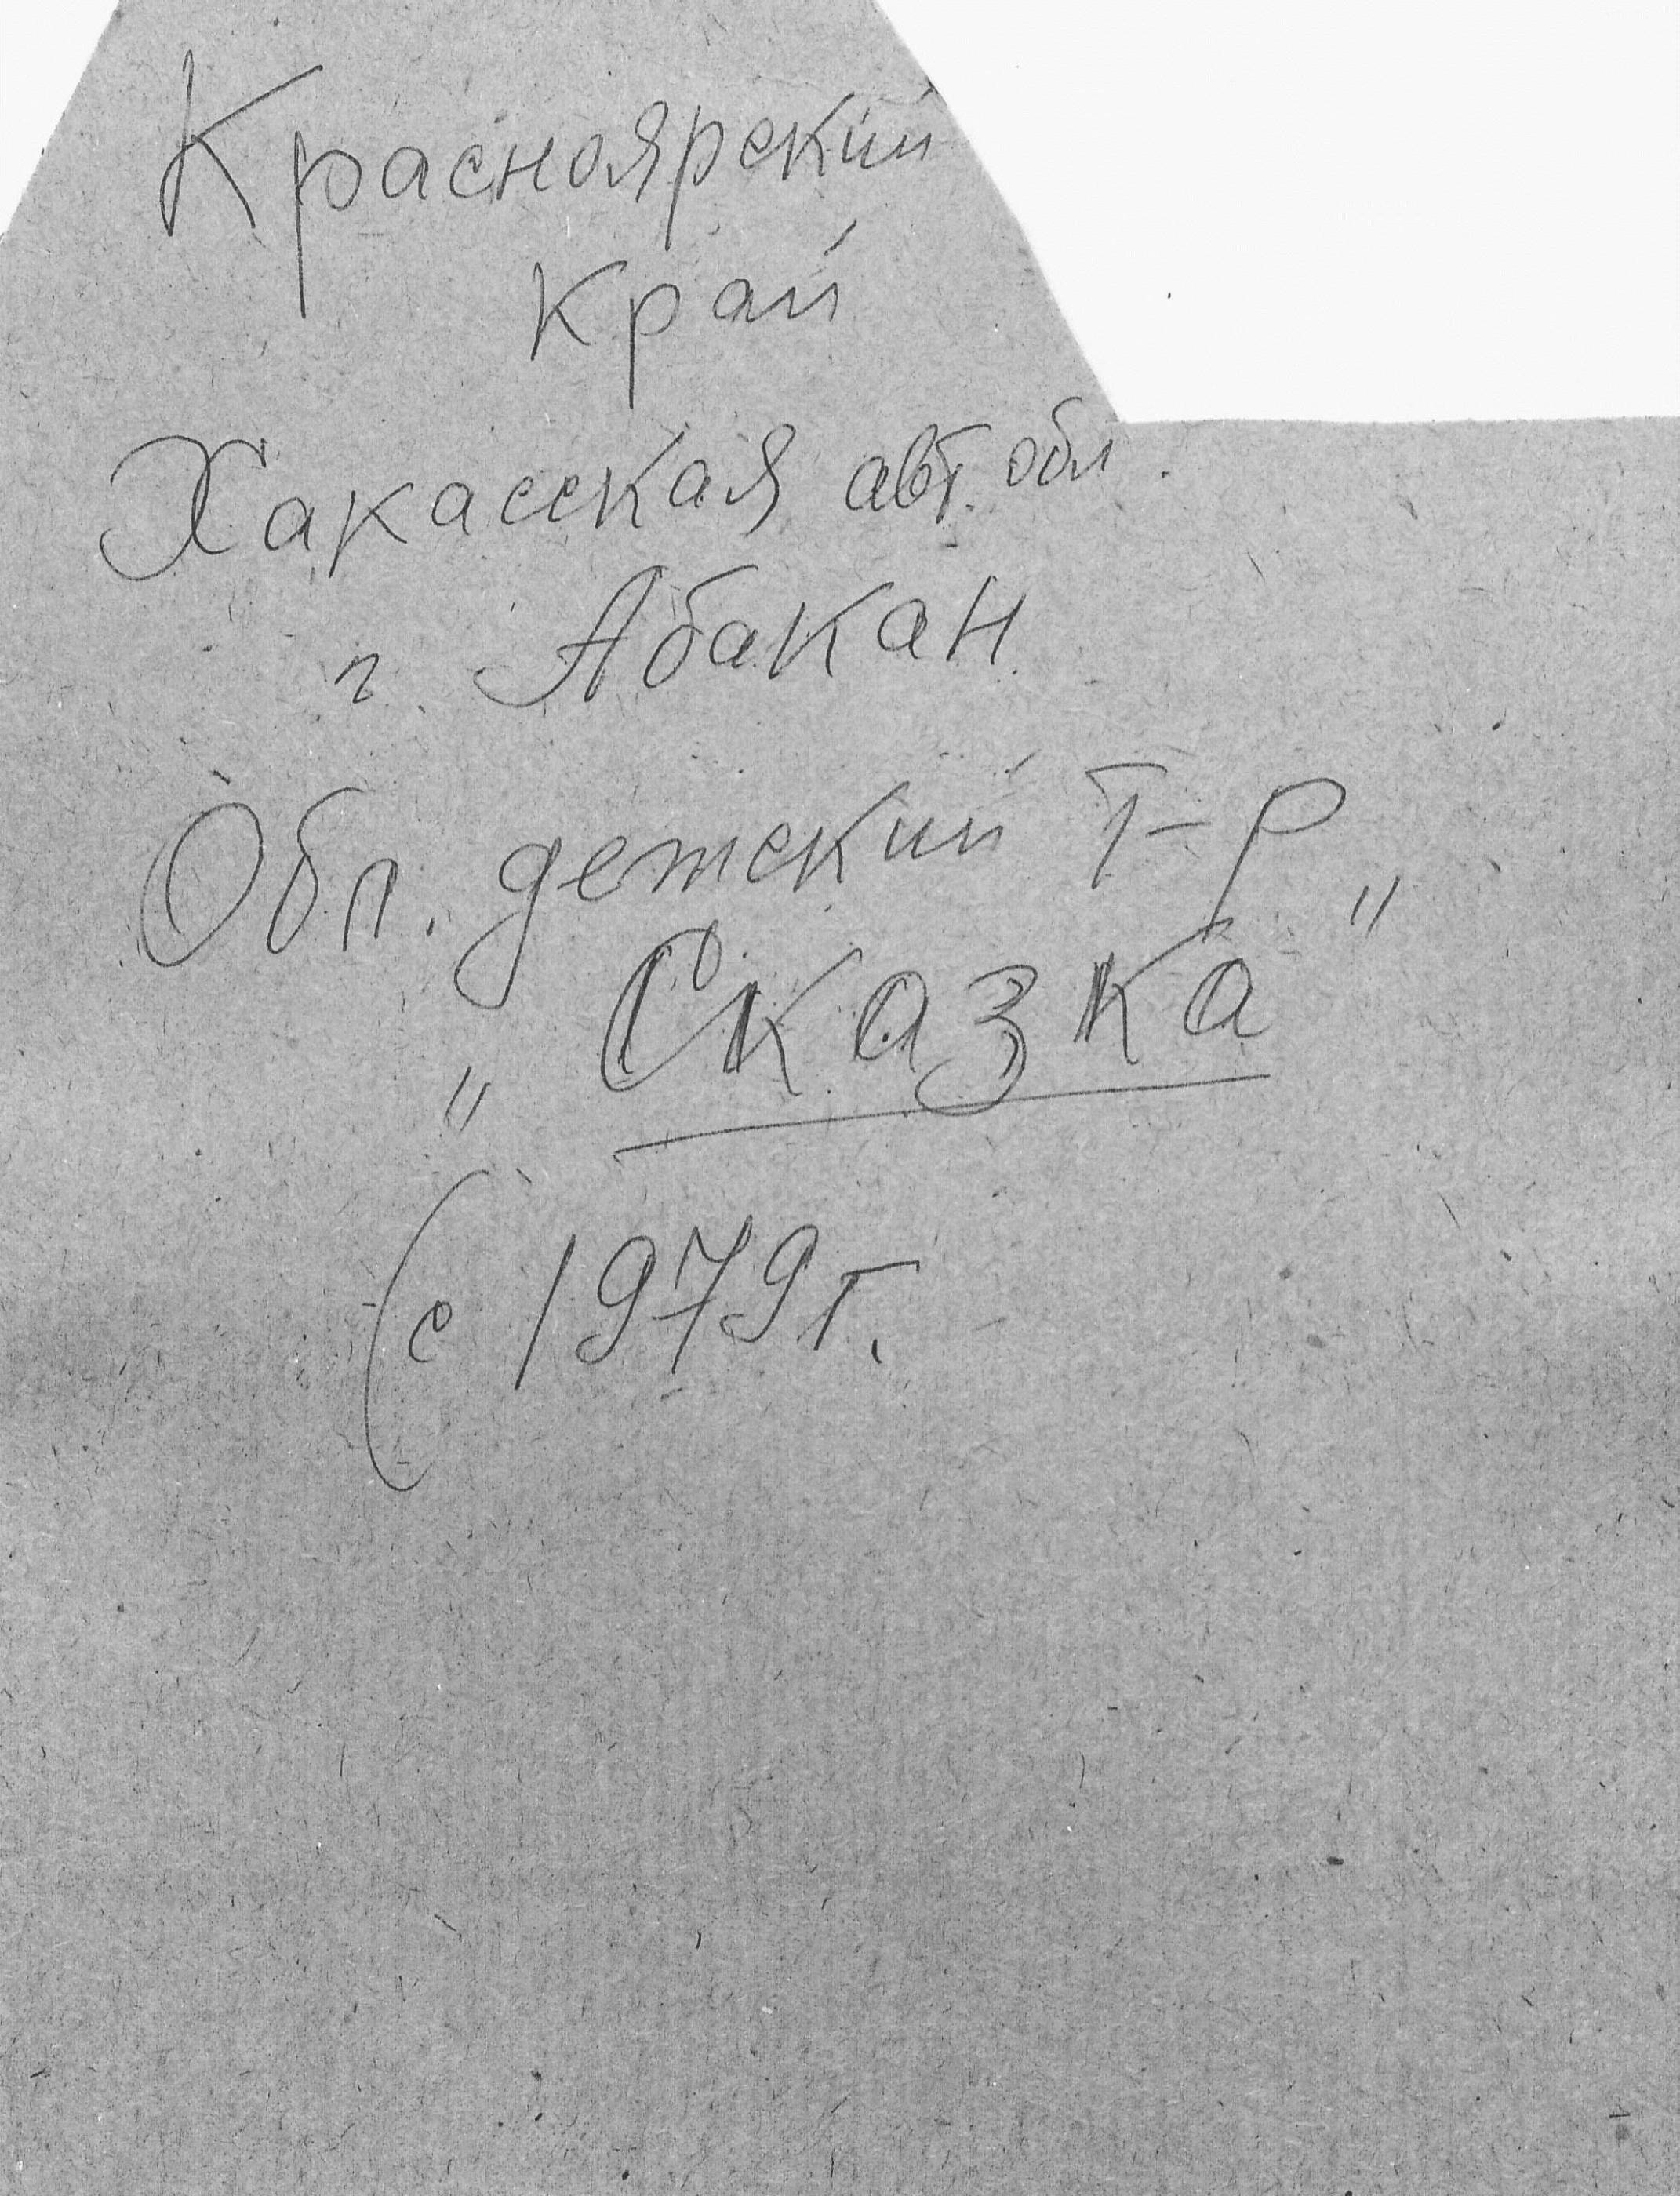 Красноярский
край
Хакасская авт. обл.
г. Абакан
Обл. детский т-р
"Сказка"
(с 1979 г.